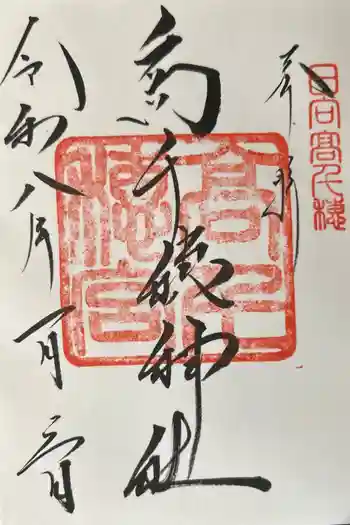 奉拝
日向高千穂
高千穂神社
高千穂宮
令和八年一月三日